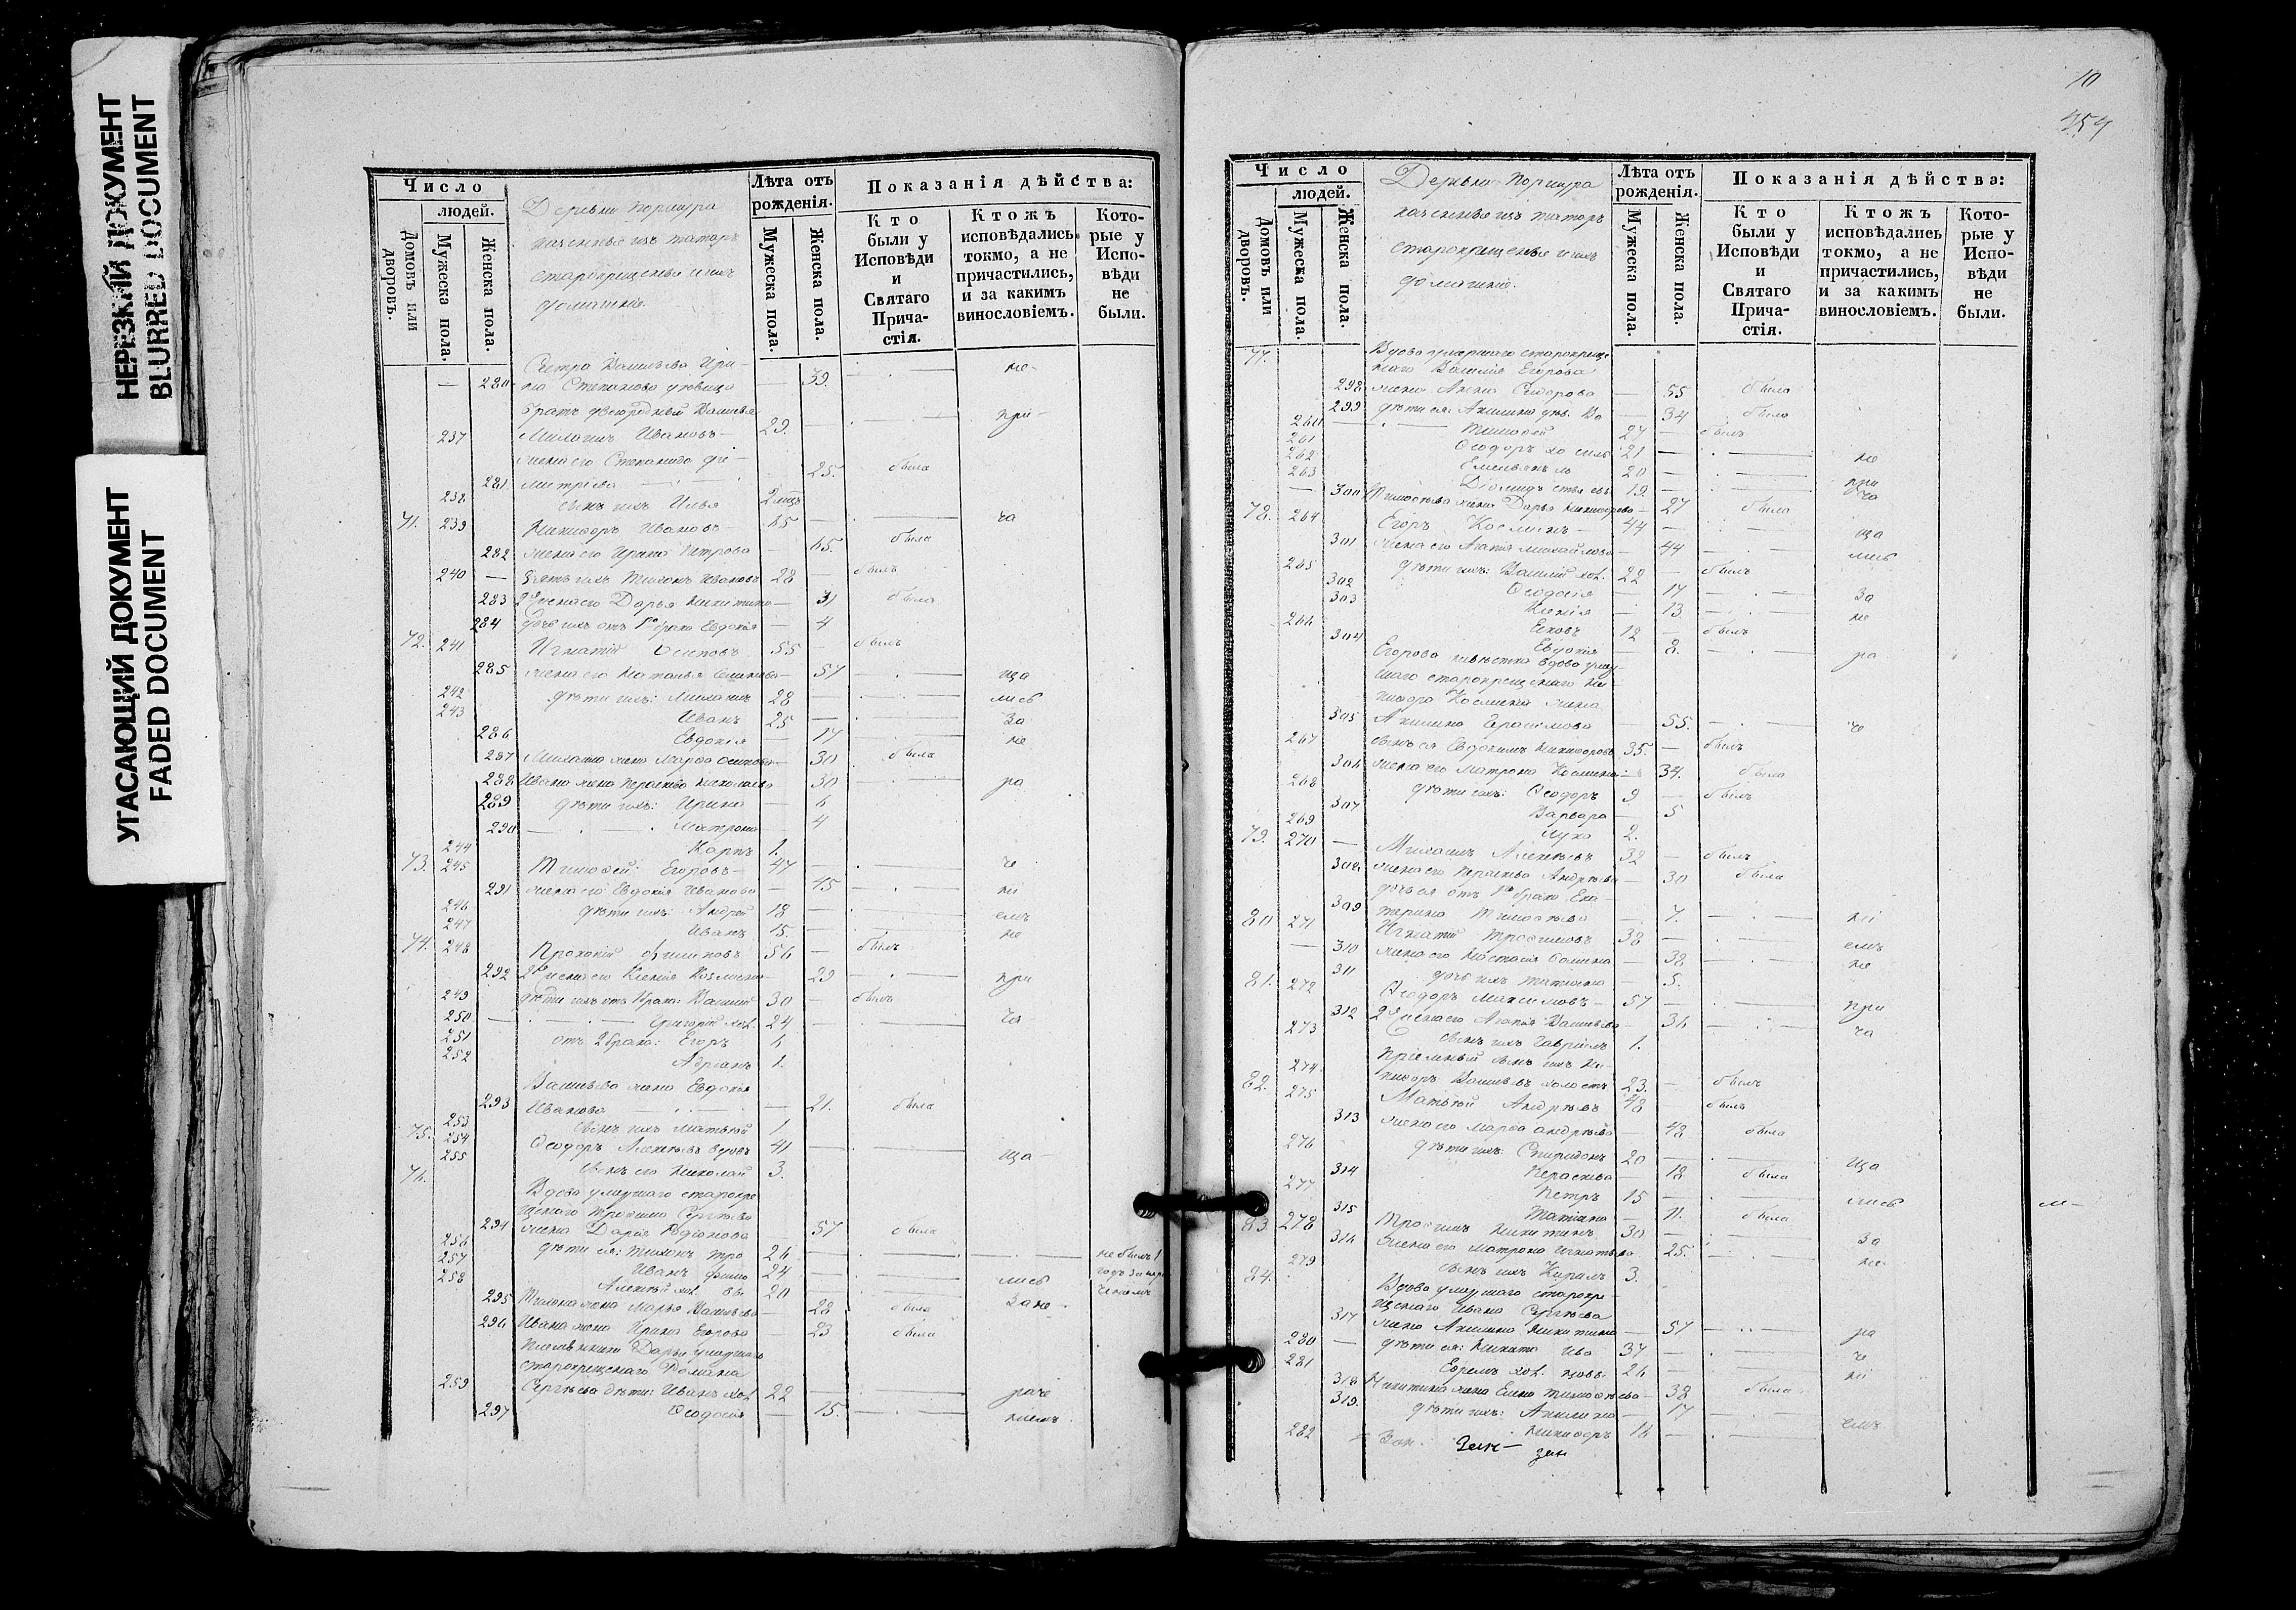 НЕРЕЗКИЙ ДОКУМЕНТ
BLURRED DOCUMENT
УГАСАЮЩИЙ ДОКУМЕНТ
FADED DOCUMENT
Число
людей.
Домовъ или дворовъ.
Мужеска пола.
Женска пола.
Деревни
старокрещеные и ихъ
домашніе.
Лѣта отъ рожденія.
Мужеска пола.
Женска пола.
Показанія дѣйства:
Кто были у Исповѣди и Святаго Прича-стія.
Ктожъ исповѣдались токмо, а не причастились, и за какимъ винословіемъ.
Кото-рые у Испо-вѣди не были.
Петра Васильева Ири-
280 на Степанова 39. не
братъ двоюродный
237 Михаилъ Ивановъ 29. при
жена его Степанида Ди-
281 митріева 25. была
238 сынъ ихъ Илья
71. 239 Никифоръ Ивановъ 65 ча
282 жена его Ирина Петрова 65. была
240 зять ихъ Тихонъ Ивановъ 28 былъ
283 жена его Дарья Никитина 31 была
284 дочь ихъ отъ 1го брака Евдокія 4
72. 241 Игнатій Осиповъ 55 былъ
285 жена его Наталья 57 ща
242 дѣти ихъ: Михаилъ 28 лись
243 Иванъ 25 За
286 Евдокія 17 не
287 Михаила жена Марѳа Осипова 30 была
288 Ивана жена 30 ра
289 дѣти ихъ: Ирина 6
290 Матрона 4
244 Карпъ 1.
73. 245 Тимоѳей Егоровъ 47 че
291 жена его Евдокія Иванова 45 ні
246 дѣти ихъ: Андрей 18 емъ
247 Иванъ 15. не
74. 248 Прокопій Филиповъ 56 былъ
292 жена его Ксенія Козмина 29 при
249 дѣти ихъ отъ 1 брака: Василій 30 былъ
250 Григорій хол. 24 ча
251 отъ 2 брака: Егоръ 6
252 Адріанъ 1.
Васильева жена Евдокія
293 Иванова 21. была
253 сынъ ихъ Матвей 1
75. 254 Ѳеодоръ Алексѣевъ вдовъ 41 ща
255 сынъ его Николай 3.
76. Вдова умершаго старокре
щенаго Трофима Сергѣева
294 жена Дарія Родіонова 57 была
256 дѣти ея: Тихонъ Тро 26 не былъ 1
257 Иванъ фимо 24
258 Алексѣй хол. вы 20 лись
295 Тихона жена Марья Васильева 28 была За не
296 Ивана жена Ирина Егорова 23 была
старокрещенаго Романа
259 Сергѣева дѣти: Иванъ хол. 22 раче
297 Ѳеодосія 15. ніемъ
10
Число
людей.
Домовъ или дворовъ.
Мужеска пола.
Женска пола.
Деревни
старокрещеные и ихъ
домашніе.
Лѣта отъ рожденія.
Мужеска пола.
Женска пола.
Показанія дѣйства:
Кто были у Исповѣди и Святаго Прича-стія.
Ктожъ исповѣдались токмо, а не причастились, и за какимъ винословіемъ.
Кото-рые у Испо-вѣди не были.
77. Вдова умершаго старокреще
наго Василія Егорова
298 жена Анна Сидорова 55 была
299 дѣти ея: Акилина дѣв. Ва 34 была
260 Тимоѳей 27 былъ
261 Ѳеодоръ хо силь 21 не
262 Емельянъ 20 при
263 19. ча
300 Тимоѳеева жена Дарья Никифорова 27 была
78. 264 Егоръ Козминъ 44 ща
301 жена его Агапія Михайлова 44 лись
265 дѣти ихъ: Василій хол. 22 былъ
302 Ѳеодосія 17 За
303 Ксенія 13 не
266 12 былъ
304 Евдокія 8. ра
Егорова невѣстка вдова умер
шаго старокрещенаго Ни-
кифора Козмина жена
305 Акилина Герасимова 55. че
267 сынъ ея Евдокимъ Никифоровъ 35. былъ
306 жена его Матрона Козмина 34. была
268 дѣти ихъ: Ѳеодоръ 9 былъ
307 Варвара 5
269 Лука 2.
79. 270 Михаилъ Алексѣевъ 32 былъ
308 жена его Андрѣева 30 была
дочь ея отъ 1го брака Ека-
309 терина Тимоѳеева 7. ні
80 271 Игнатій Трофимовъ 38 емъ
310 жена его 38 не
311 дочь ихъ Татіана 5.
81. 272 Ѳеодоръ Максимовъ 57 при
312 жена его Агапія Васильева 36 ча
273 сынъ ихъ Гавріилъ 1.
Пріемный сынъ ихъ Ни-
274 кифоръ Васильевъ холостъ 23. былъ
82. 275 Матвей Андрѣевъ 48 былъ
313 жена его Марѳа Андрѣева 48 была
276 дѣти ихъ: Спиридонъ 20 ща
314 18 была
277 Петръ 15 лись
315 Татіана 11. была
83. 278 Трофимъ Никитинъ 30 За
316 жена его Матрона Игнатьева 25. не
279 сынъ ихъ Кирилъ 3.
84. Вдова умершаго старокре-
щенаго Ивана Сергѣева
317 жена Акилина Никитина 57 ра
280 дѣти ея: Никита Ива 37 че
281 Ефремъ хол. новы 26 ні
318 Никитина жена Елена Тимоѳеева 38 была
319. дѣти ихъ: Акилина 17
282 Никифоръ 16 емъ